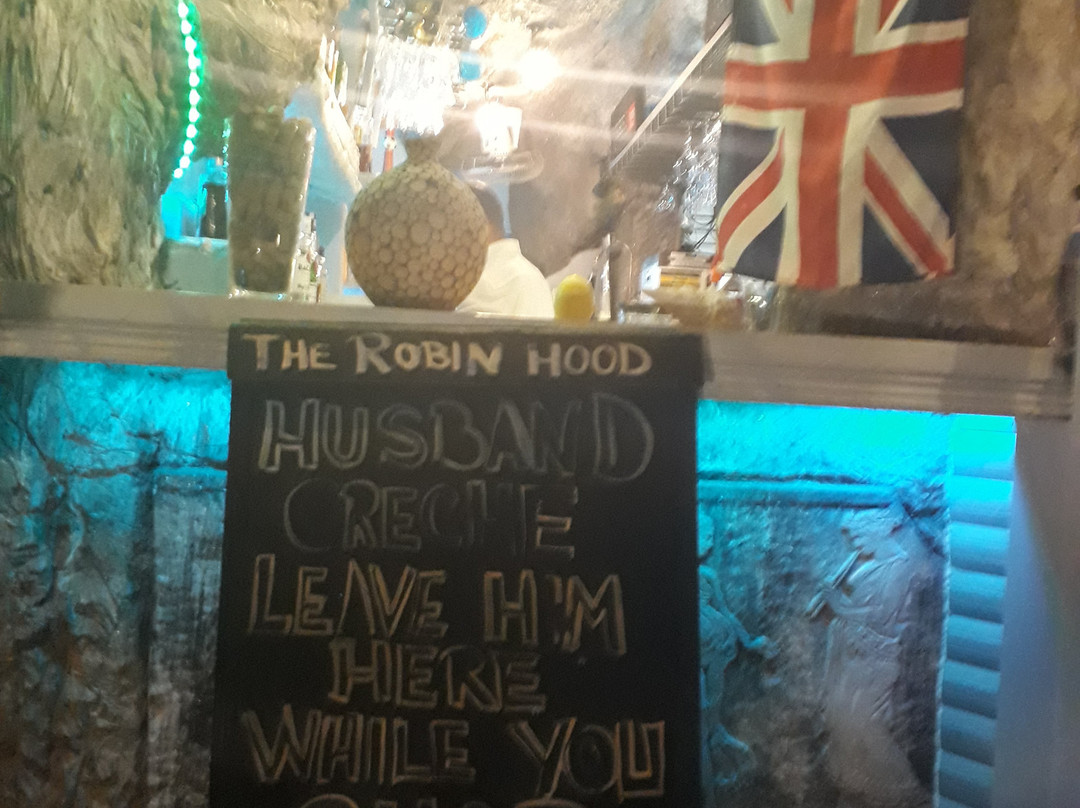 THE ROBIN HOOD
HUSBAND
CRECHE
LEAVE HIM
HERE
WHILE YOU